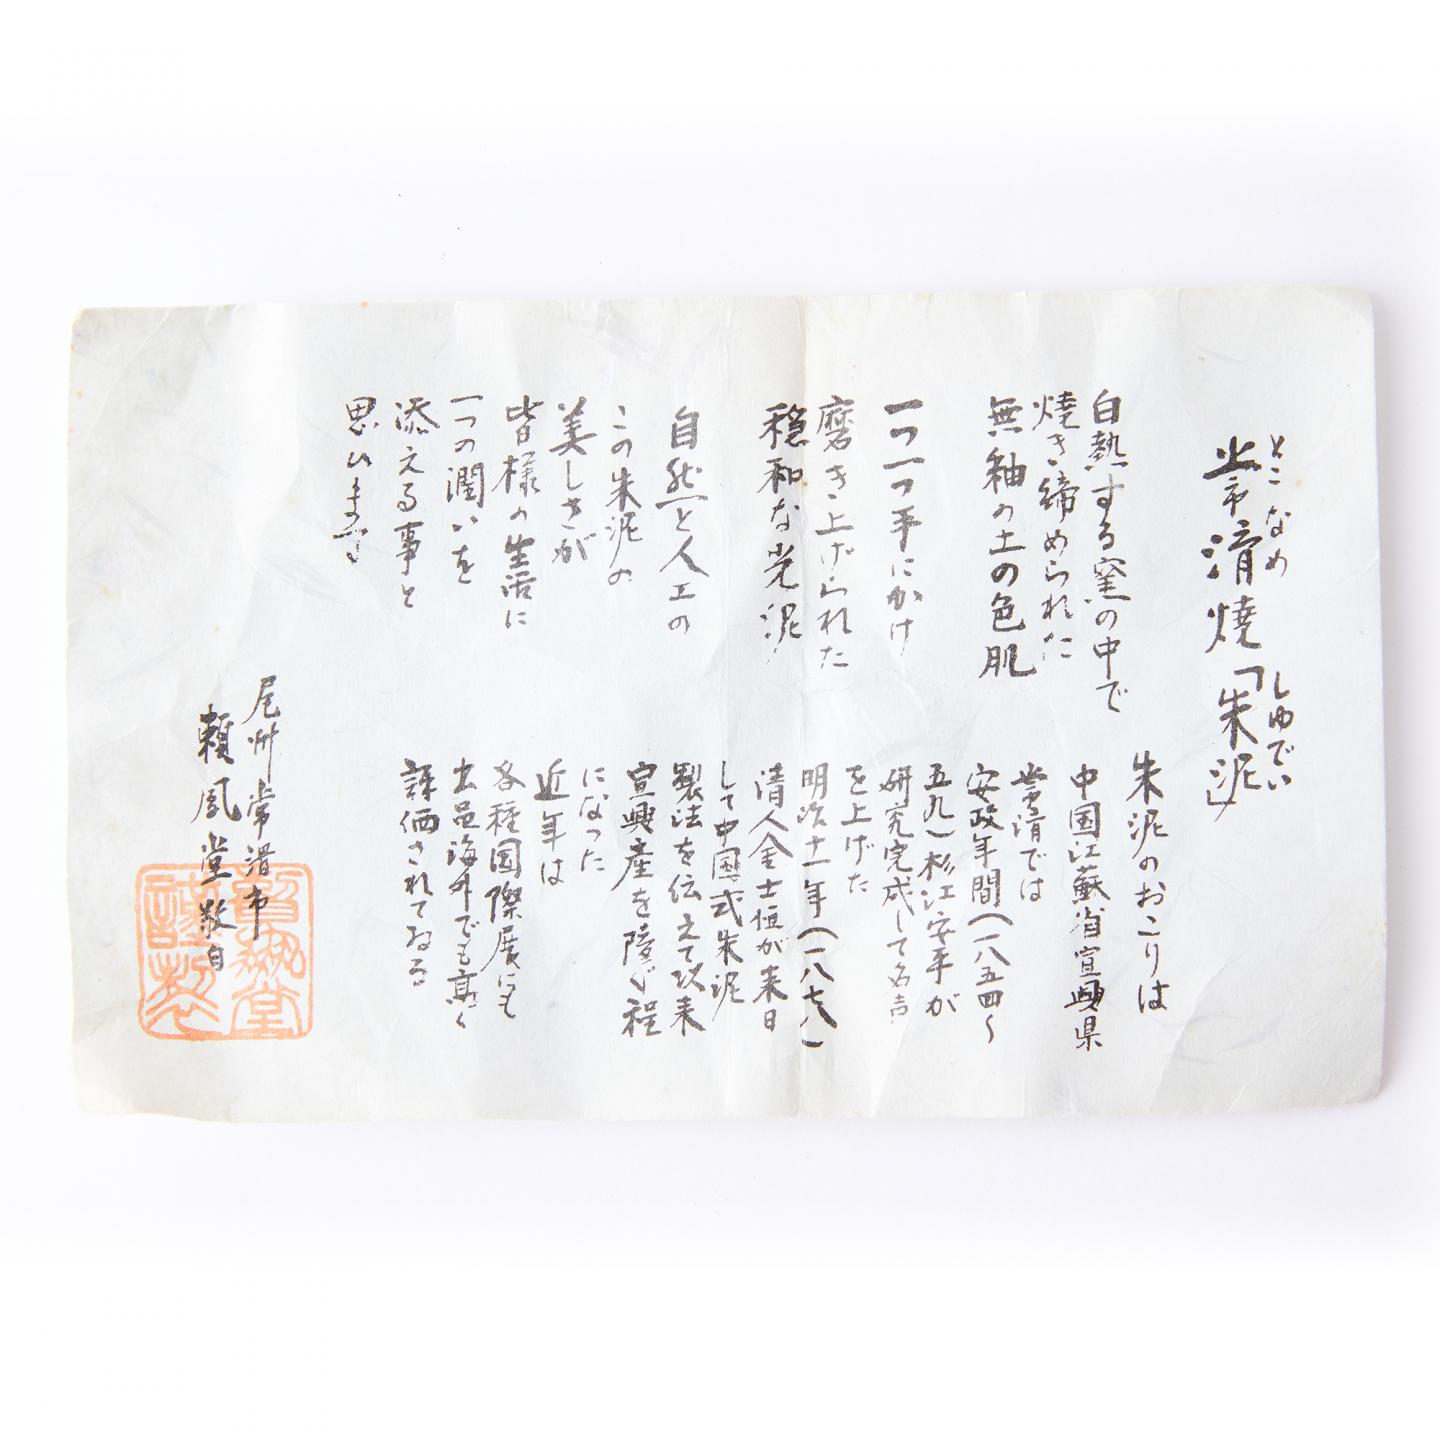 とこなめ しゅでい
常滑焼「朱泥」
白熱する窯の中で
焼き締められた
無釉の土の色肌
一つ一つ手にかけ
磨き上げられた
穏和な光泥
自然と人工の
この朱泥の
美しさが
皆様の生活に
一つの潤いを
添える事と
思います
朱泥のおこりは
中国江蘇省宜興県
常滑では
安政年間(一八五四〜
五九)杉江安平が
研究完成して名声
を上げた
明治十一年(一八七八)
清人金士恒が来日
して中国式朱泥
製法を伝えて以来
宜興産を陵ぐ程
になった
近年は
各種国際展にも
出品海外でも高く
評価されてゐる
尾州常滑市
頼風堂敬白
堂
謹製